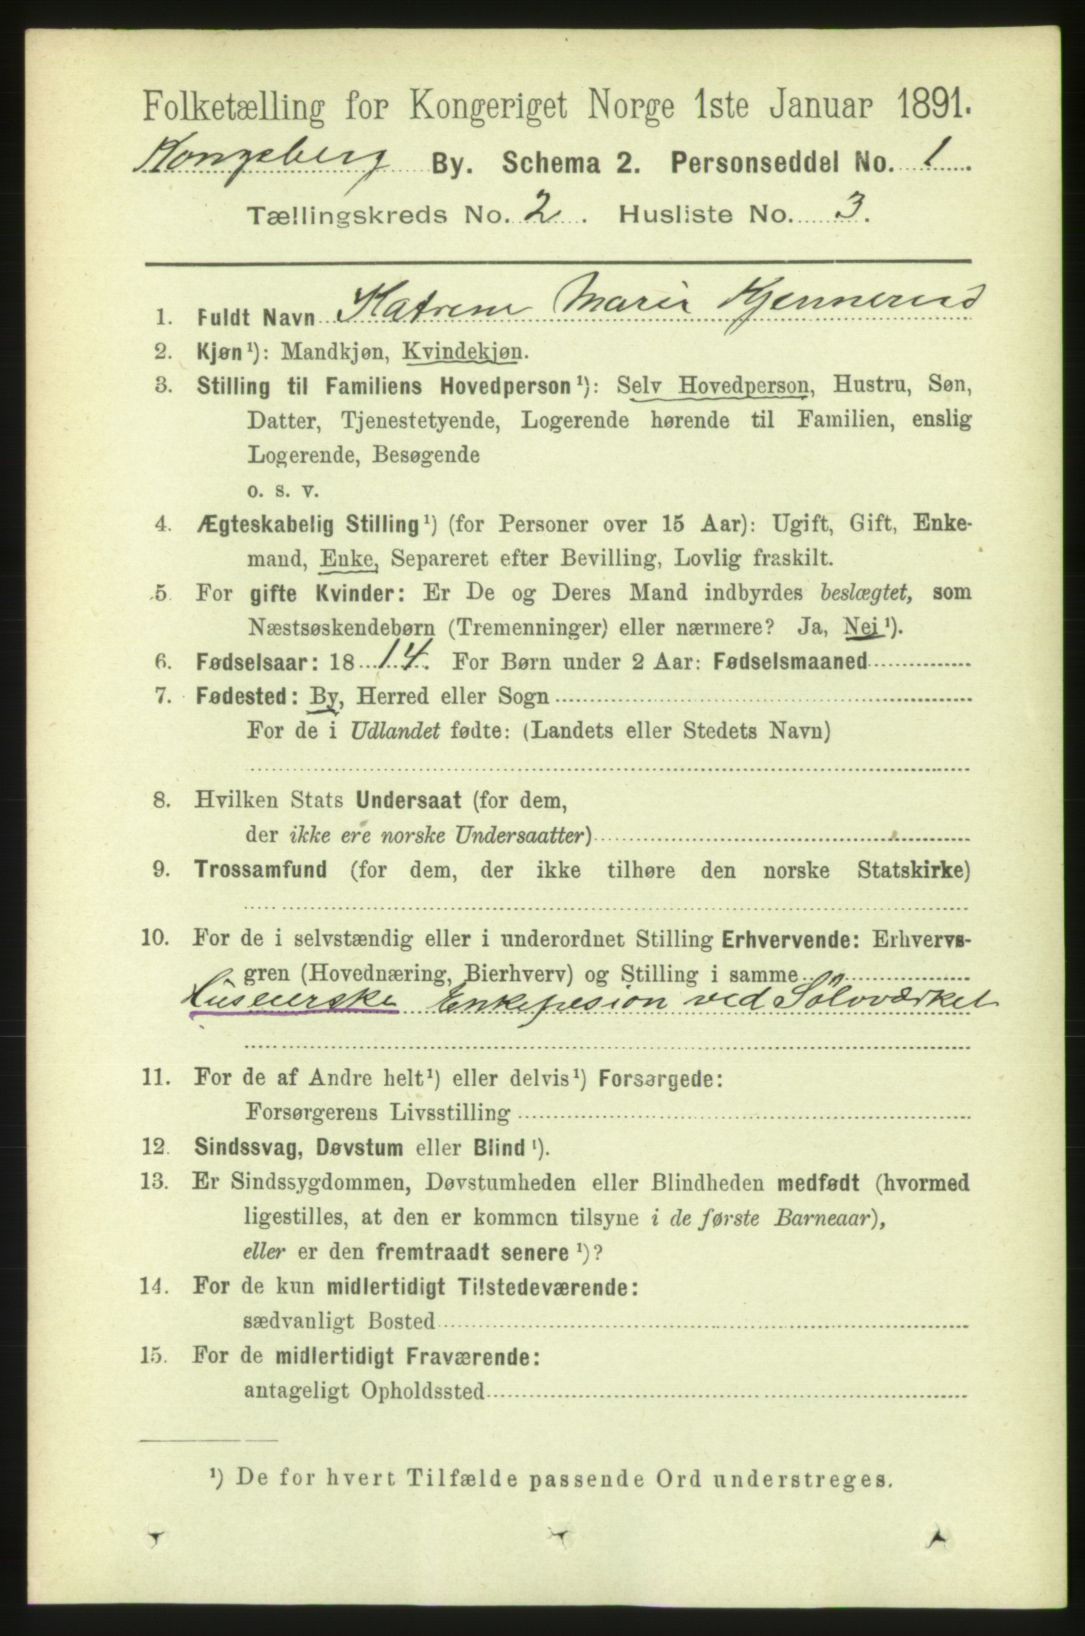 Folketælling for Kongeriget Norge 1ste Januar 1891.
Kongsberg By. Schema 2. Personseddel No. 1
Tællingskreds No. 2. Husliste No. 3.
1. Fuldt Navn Katrene Marie Kjennerud
2. Kjøn¹): Mandkjøn, Kvindekjøn.
3. Stilling til Familiens Hovedperson¹): Selv Hovedperson, Hustru, Søn,
Datter, Tjenestetyende, Logerende hørende til Familien, enslig
Logerende, Besøgende
o. s. v.
4. Ægteskabelig Stilling¹) (for Personer over 15 Aar): Ugift, Gift, Enke-
mand, Enke, Separeret efter Bevilling, Lovlig fraskilt.
5. For gifte Kvinder: Er De og Deres Mand indbyrdes beslægtet, som
Næstsøskendebørn (Tremenninger) eller nærmere? Ja, Nei¹).
6. Fødselsaar: 1814. For Børn under 2 Aar: Fødselsmaaned
7. Fødested: By, Herred eller Sogn
For de i Udlandet fødte: (Landets eller Stedets Navn)
8. Hvilken Stats Undersaat (for dem,
der ikke ere norske Undersaatter)
9. Trossamfund (for dem, der ikke tilhøre den norske Statskirke)
10. For de i selvstændig eller i underordnet Stilling Erhvervende: Erhvervs-
gren (Hovednæring, Bierhverv) og Stilling i samme
Huseierske Enkepesion ved Sölvværket
11. For de af Andre helt¹) eller delvis¹) Forsørgede:
Forsørgerens Livsstilling
12. Sindssvag, Døvstum eller Blind¹).
13. Er Sindssygdommen, Døvstumheden eller Blindheden medfødt (hvormed
ligestilles, at den er kommen tilsyne i de første Barneaar),
eller er den fremtraadt senere¹)?
14. For de kun midlertidigt Tilstedeværende:
sædvanligt Bosted
15. For de midlertidigt Fraværende:
antageligt Opholdssted
¹) De for hvert Tilfælde passende Ord understreges.